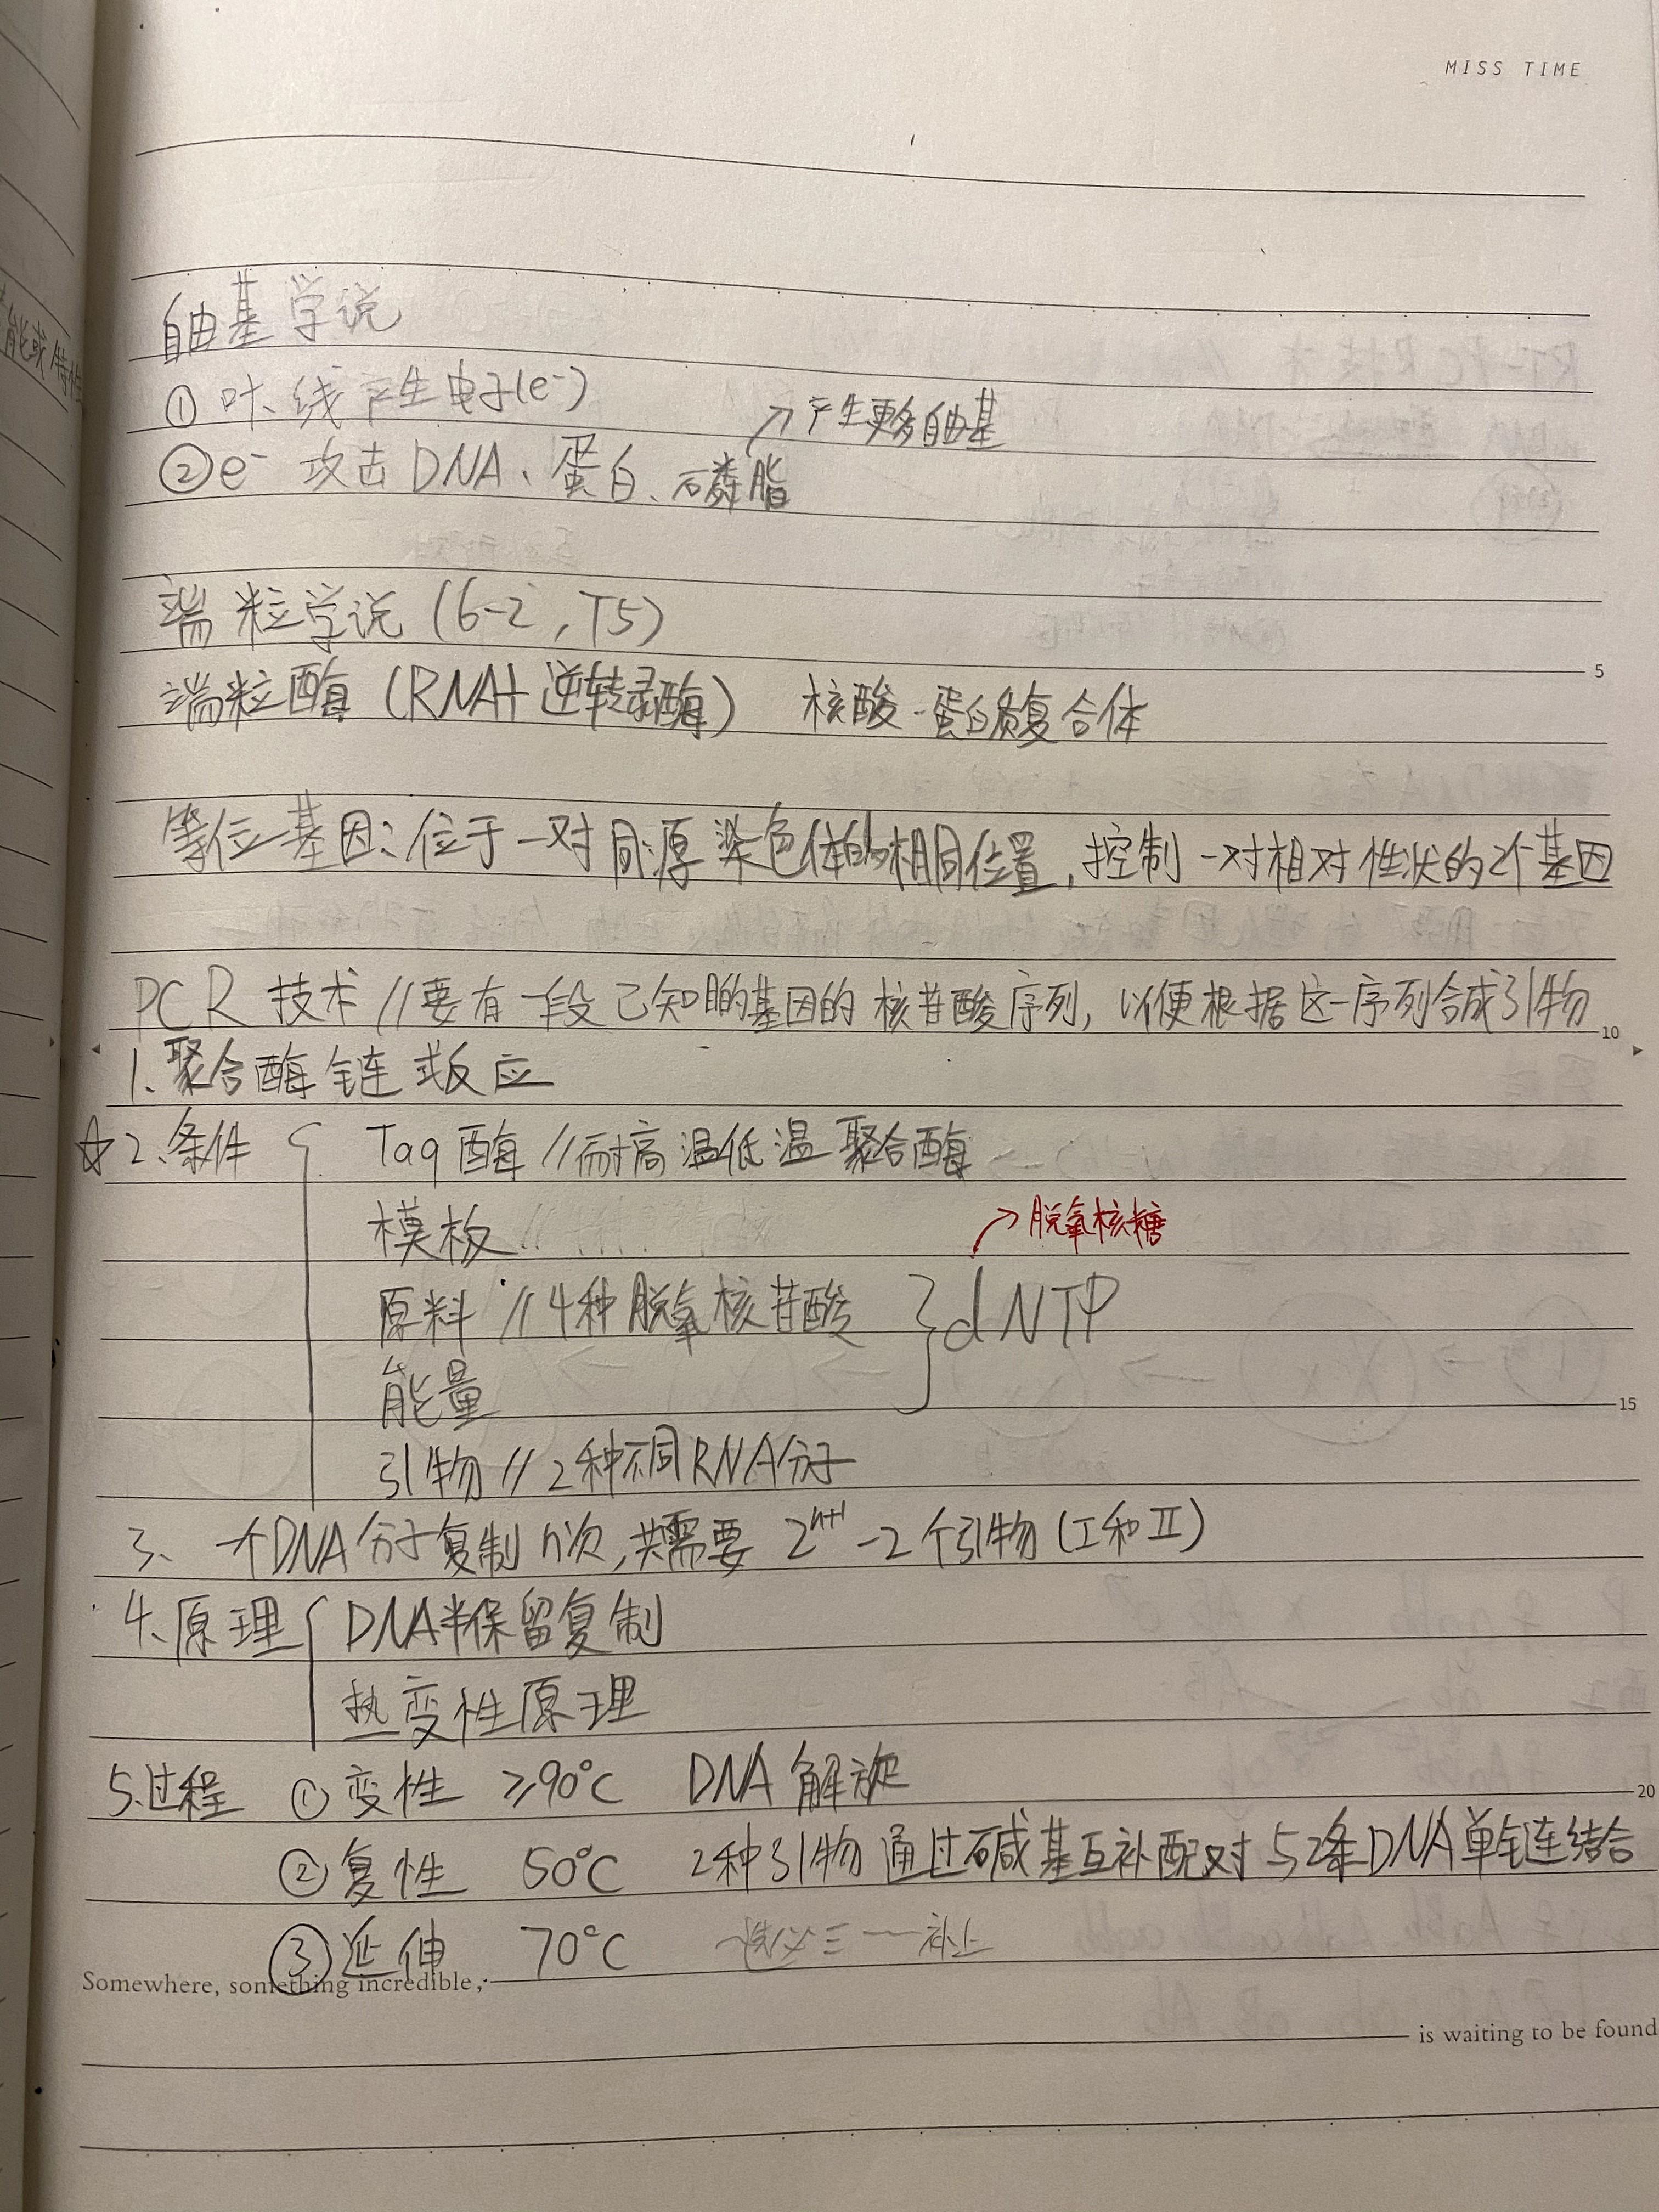 MISS TIME
自由基学说
①叶、线产生电子(e⁻)
→产生更多自由基
②e⁻ 攻击DNA、蛋白、磷脂
端粒学说(6-2,T5)
端粒酶(RNA+逆转录酶) 核酸-蛋白质复合体
5
等位基因:位于一对同源染色体的相同位置,控制一对相对性状的2个基因
PCR技术//要有一段已知目的基因的核苷酸序列,以便根据这一序列合成引物
10
1.聚合酶链式反应
☆2.条件 Taq酶//耐高温低温聚合酶
模板//
→脱氧核糖
原料//4种脱氧核苷酸 } dNTP
能量
15
引物//2种不同RNA分子
3、一个DNA分子复制n次,共需要2ⁿ⁺¹-2个引物(I和II)
4、原理 { DNA半保留复制
热变性原理
5.过程 ①变性 ≥90°C DNA解旋
20
②复性 50°C 2种引物通过碱基互补配对与2条DNA单链结合
③延伸 70°C
Somewhere, something incredible,
is waiting to be found